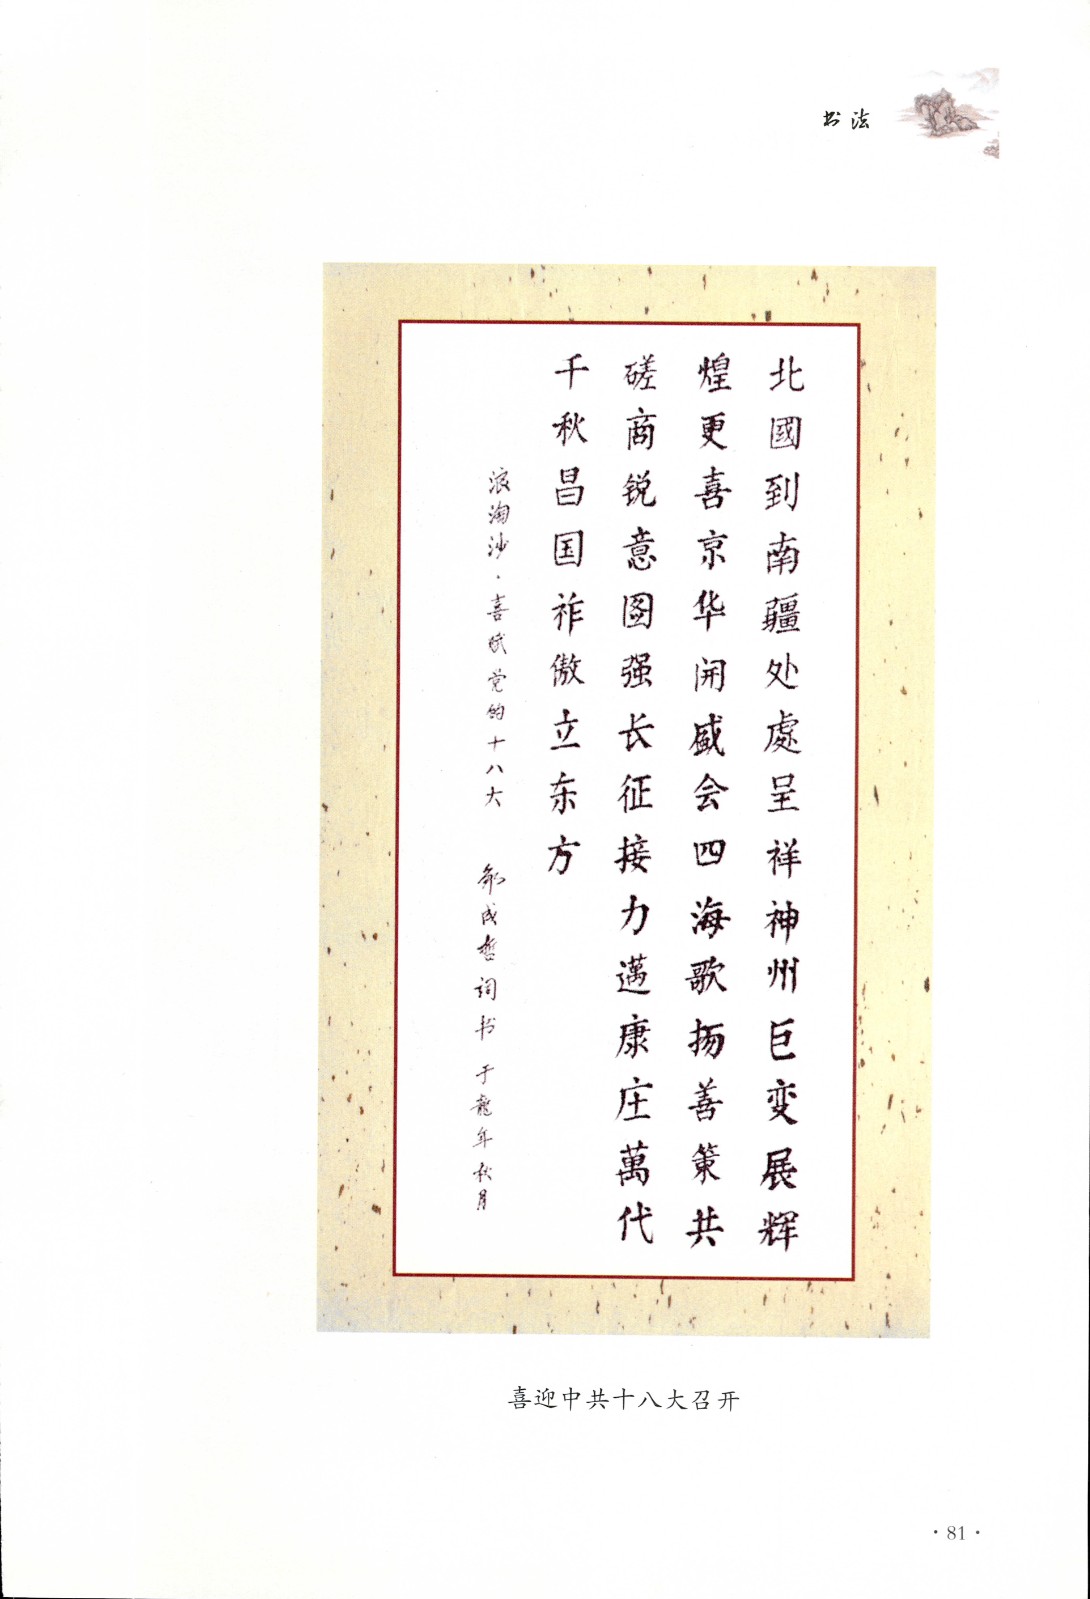 书法
北國到南疆处處呈祥神州巨变展辉
煌更喜京华开盛会四海歌扬善策共
磋商锐意图强长征接力邁康庄萬代
千秋昌国祚傲立东方
浪淘沙·喜赋党的十八大 邹成哲词书于龍年秋月
喜迎中共十八大召开
·81·